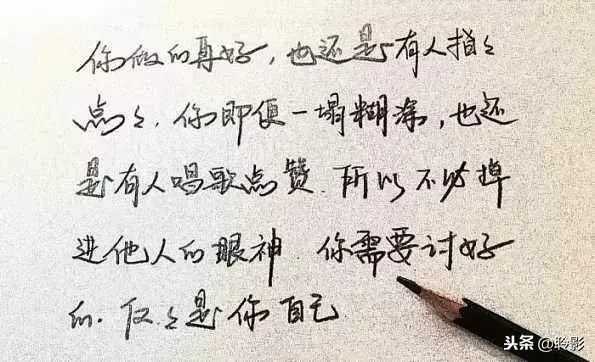 你做的再好，也还是有人指々
点々．你即便一塌糊涂，也还
是有人唱歌点赞．所以不必掉
进他人的眼神．你需要讨好
的．仅々是你自己
头条@聆影